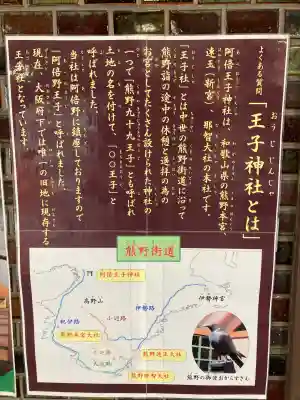 よくある質問
おうじ じんじゃ
「王子神社とは」
阿倍王子神社は、和歌山県の熊野本宮・
速玉（新宮）・那智大社の末社です。
「王子社」とは中世の熊野街道に沿って
熊野詣の途中の休憩と遥拝の為の
お宮としてたくさん設けられた神社の
一つで「熊野九十九王子」とも呼ばれ
土地の名を付けて、「〇〇王子」と
呼ばれました。
当社は阿倍野に鎮座しておりますので
「阿倍野王子」と呼ばれました。
現在、大阪府下では唯一の旧地に現存する
王子社となっています。
熊野街道
阿倍王子神社
高野山
伊勢路
伊勢神宮
小辺路
紀伊路
熊野本宮大社
中辺路
大辺路
熊野速玉大社
熊野那智大社
熊野の御使おからすさん